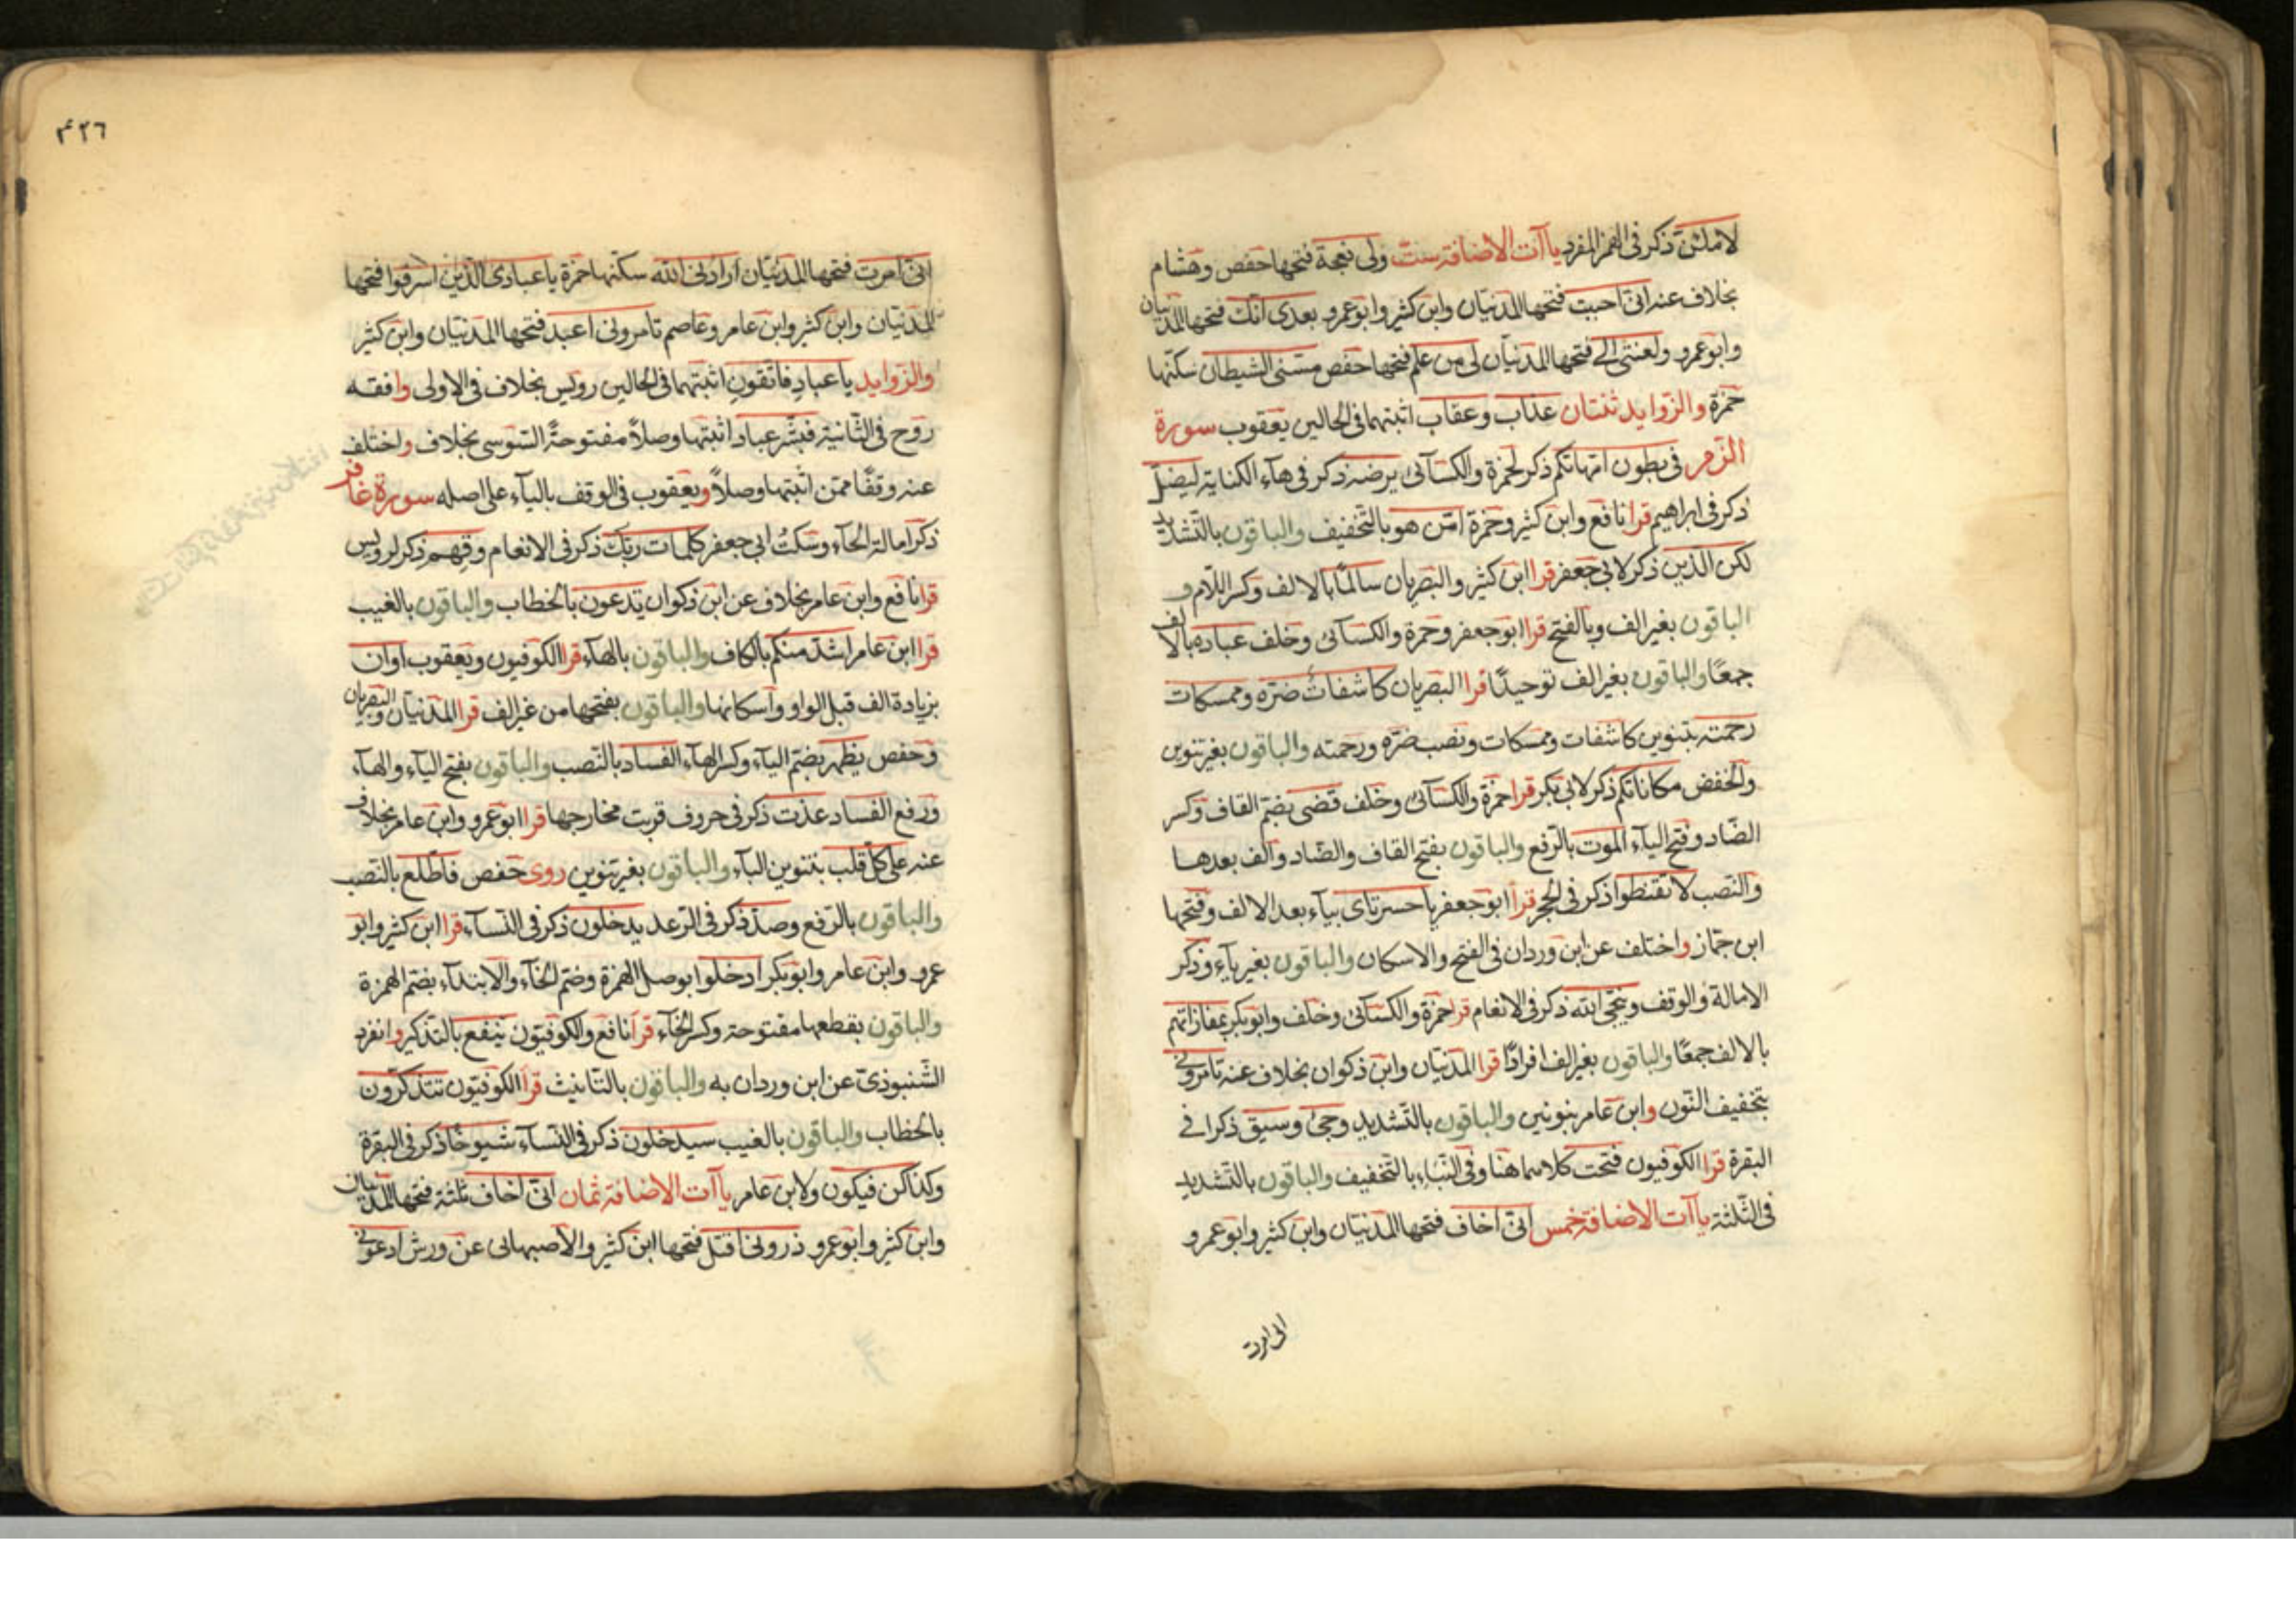 لاملئن ذكر فى الهمز المفرد ياآت الاضافة ست ولى نعجة فتحها حفص وهشام
بخلاف عنه انى احببت فتحها المدنيان وابن كثير وابو عمرو بعدى انك فتحها المدنيان
وابو عمرو ولعنتى الى فتحها المدنيان لى من علم فتحها حفص مسنى الشيطان سكنها
حمزة والزوايد ثنتان عذاب وعقاب اثبتهما فى الحالين يعقوب سورة
الزمر فى بطون امهاتكم ذكر لحمزة والكسآئى يرضه ذكر فى هآء الكناية ليضل
ذكر فى ابراهيم قرا نافع وابن كثير وحمزة امن هو بالتخفيف والباقون بالتشديد
لكن الذين ذكر لابى جعفر قرا ابن كثير والبصريان سالما بالالف وكسر اللام و
الباقون بغير الف وبالفتح قرا ابو جعفر وحمزة والكسآئى وخلف عباده بالالف
جمعًا والباقون بغير الف توحيدًا قرا البصريان كاشفات ضره وممسكات
رحمته بتنوين كاشفات وممسكات ونصب ضره ورحمته والباقون بغير تنوين
والخفض مكاناتكم ذكر لابى بكر قرا حمزة والكسآئى وخلف قضى بضم القاف وكسر
الضاد وفتح اليآء الموت بالرفع والباقون بفتح القاف والضاد والف بعدها
والنصب لا تقنطوا ذكر فى الحجر قرا ابو جعفر ياحسرتاى بيآء بعد الالف وفتحها
ابن جماز واختلف عن ابن وردان فى الفتح والاسكان والباقون بغير يآء وذكر
الامالة والوقف وينجى الله ذكر فى الانعام قرا حمزة والكسآئى وخلف وابو بكر بمفازاتهم
بالالف جمعًا والباقون بغير الف افرادًا قرا المدنيان وابن ذكوان بخلاف عنه تامرونى
بتخفيف النون وابن عامر بنونين والباقون بالتشديد وجئ وسيق ذكرا فى
البقرة قرا الكوفيون فتحت كلاهما هنا وفى النباء بالتخفيف والباقون بالتشديد
فى الثلثة ياآت الاضافة خمس انى اخاف فتحها المدنيان وابن كثير وابو عمرو
انى امرت
٤٢٦
انى امرت فتحها المدنيان ارادنى الله سكنها حمزة ياعبادى الذين اسرفوا فتحها
المدنيان وابن كثير وابن عامر وعاصم تامرونى اعبد فتحها المدنيان وابن كثير
والزوايد ياعباد فاتقون اثبتهما فى الحالين رويس بخلاف فى الاولى وافقه
روح فى الثانية فبشر عباد اثبتها وصلاً مفتوحةً السوسى بخلاف واختلف
عنه وقفًا ممن اثبتها وصلاً ويعقوب فى الوقف باليآء على اصله سورة غافر
ذكر امالة الحآء وسكت ابى جعفر كلمات ربك ذكر فى الانعام وقهم ذكر لرويس
قرا نافع وابن عامر بخلاف عن ابن ذكوان تدعون بالخطاب والباقون بالغيب
قرا ابن عامر اشد منكم بالكاف والباقون بالهآء قرا الكوفيون ويعقوب اوان
بزيادة الف قبل الواو واسكانها والباقون بفتحها من غير الف قرا المدنيان والبصريان
وحفص يظهر بضم اليآء وكسر الهآء الفساد بالنصب والباقون بفتح اليآء والهآء
ورفع الفساد عذت ذكر فى حروف قربت مخارجها قرا ابو عمرو وابن عامر بخلاف
عنه على كل قلب بتنوين البآء والباقون بغير تنوين روى حفص فاطلع بالنصب
والباقون بالرفع وصد ذكر فى الرعد يدخلون ذكر فى النسآء قرا ابن كثير وابو
عمرو وابن عامر وابو بكر ادخلوا بوصل الهمزة وضم الخآء والابتدآء بضم الهمزة
والباقون بقطعها مفتوحة وكسر الخآء قرا نافع والكوفيون ينفع بالتذكير وانفرد
الشنبوذى عن ابن وردان به والباقون بالتانيث قرا الكوفيون تتذكرون
بالخطاب والباقون بالغيب سيدخلون ذكر فى النسآء شيوخًا ذكر فى البقرة
وكذا كن فيكون ولابن عامر ياآت الاضافة ثمان انى اخاف ثلثة فتحها المدنيان
وابن كثير وابو عمرو ذرونى اقتل فتحها ابن كثير والاصبهانى عن ورش ادعونى